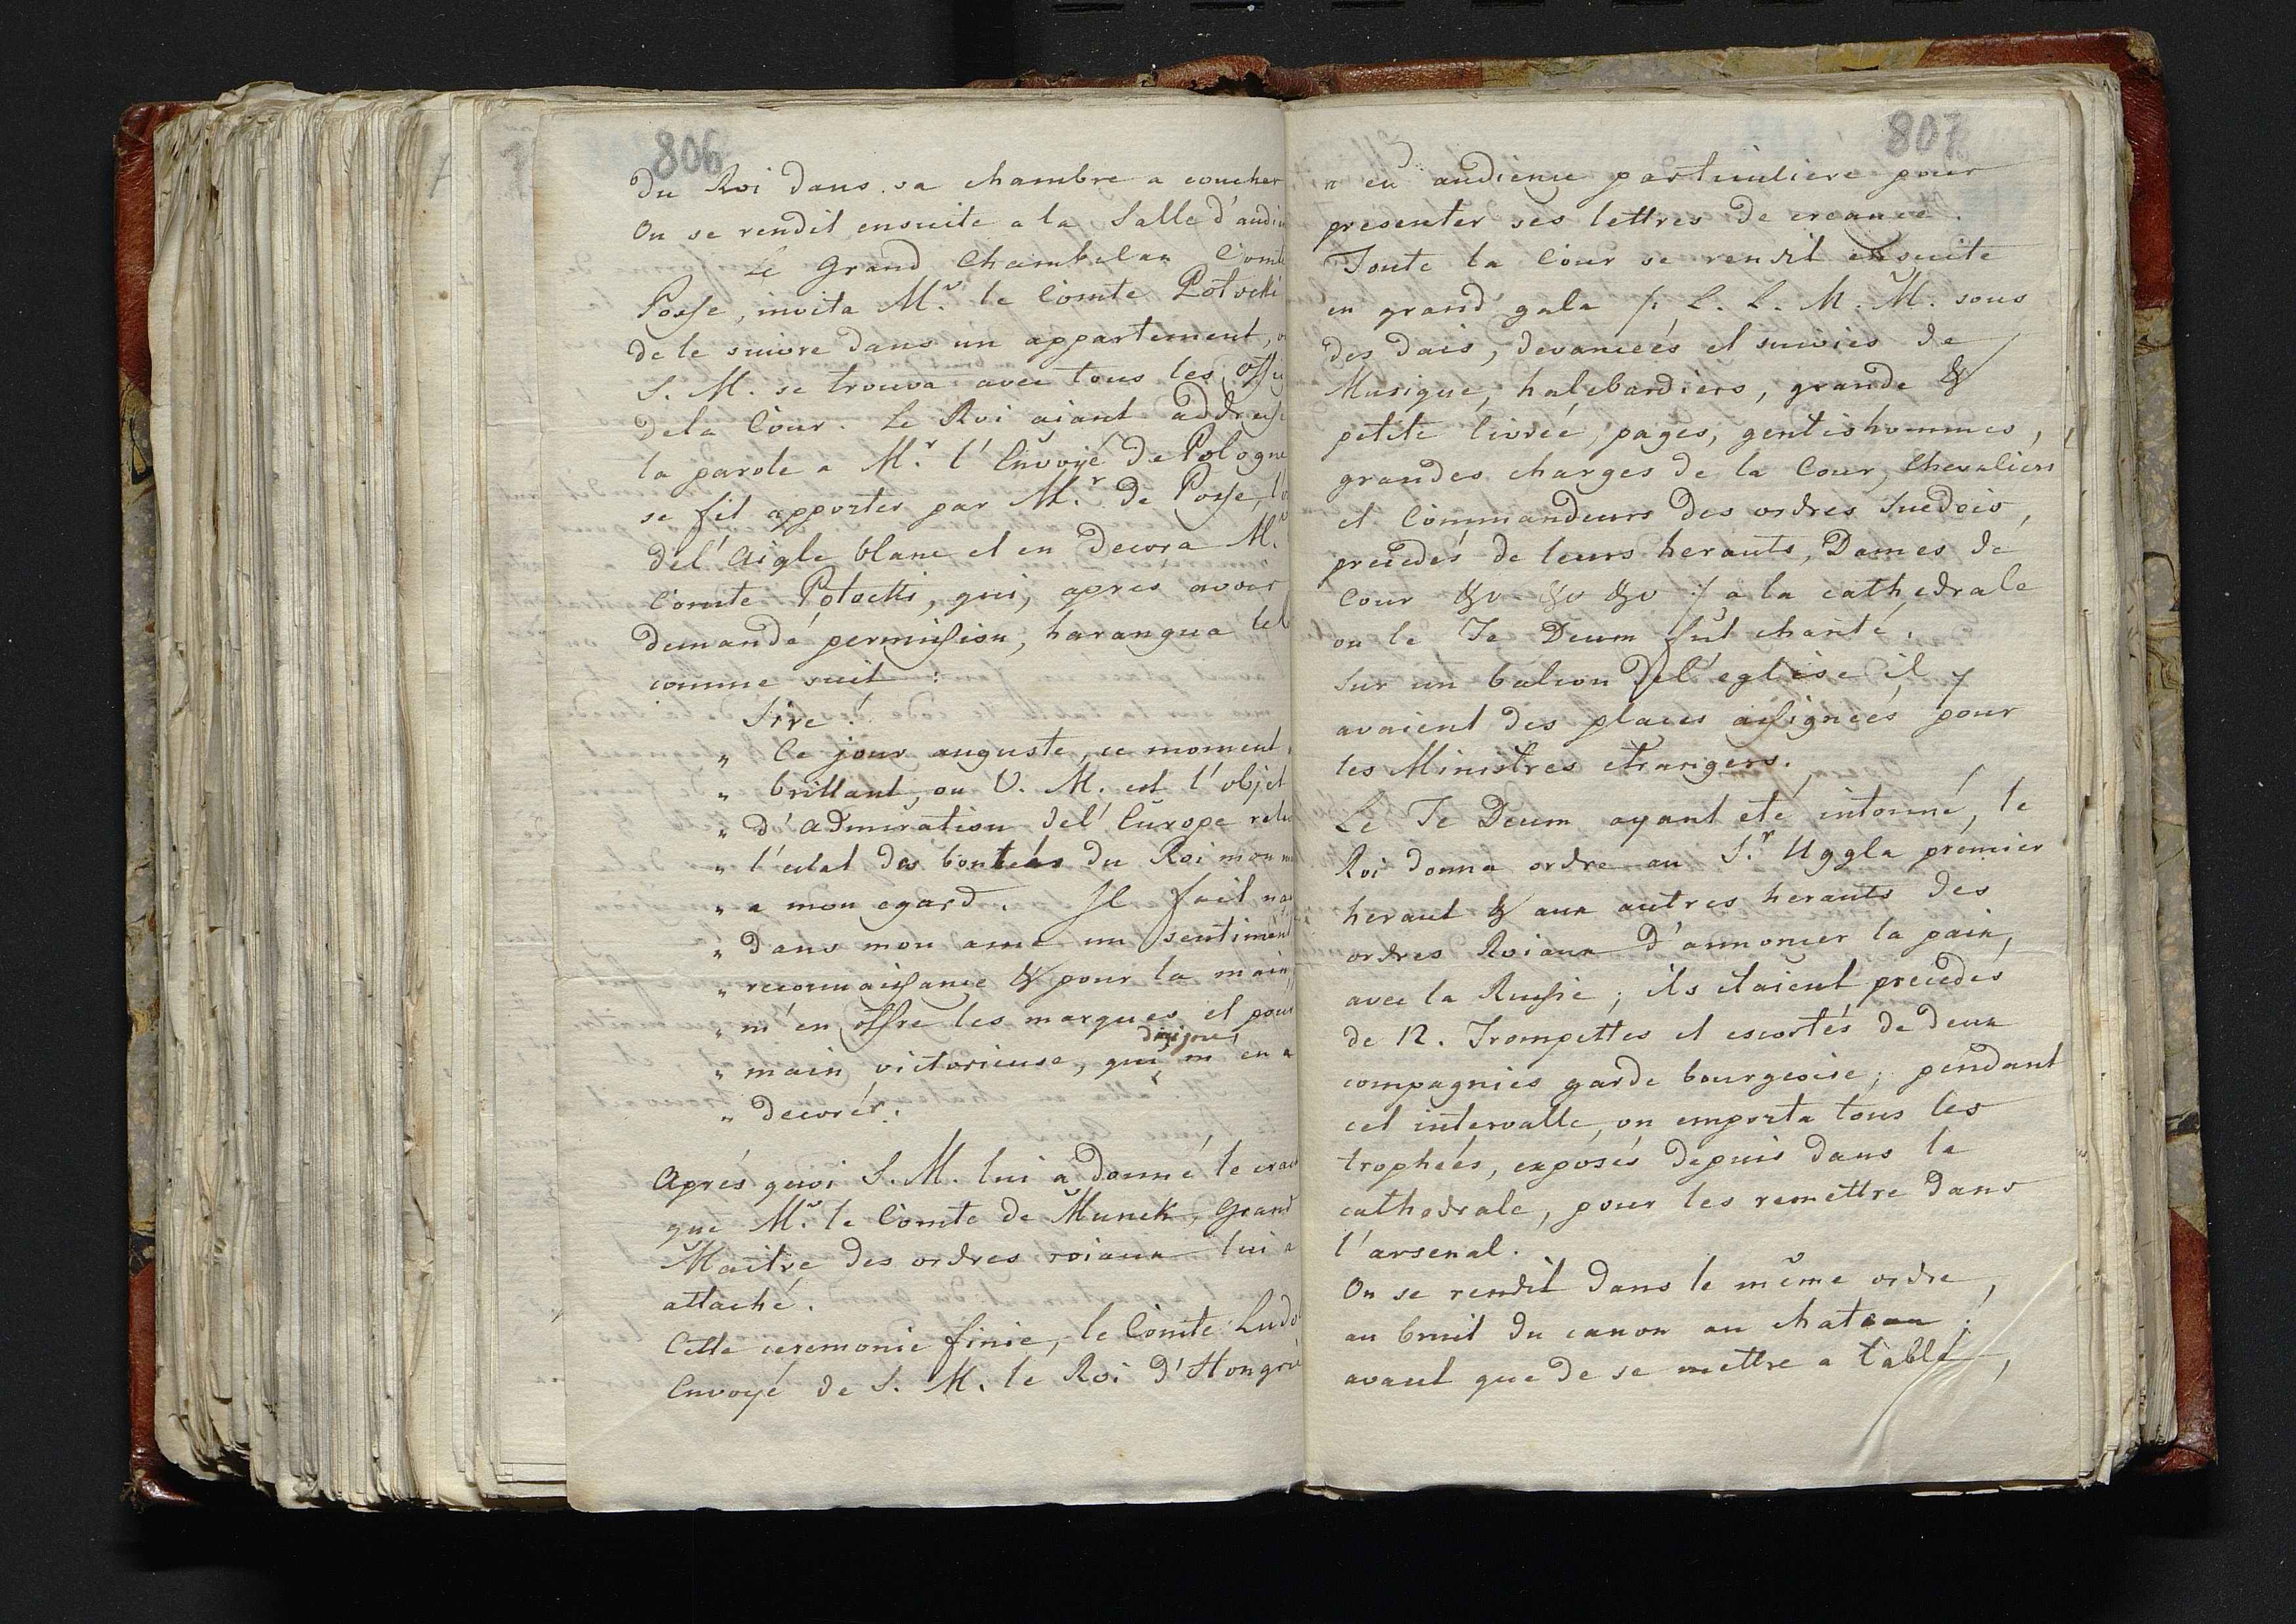 806
du Roi dans sa chambre a coucher
On se rendit ensuite a la Salle d'audi
Le Grand Chambelan Comte
Posse, invita M.r le Comte Potocki
de le suivre dans un appartement,
S. M. se trouva avec tous les
dela Cour. Le Roi aiant addressé
la parole a M.r l'Envoyé de Pologne
se fit apporter par M.r de Posse,
del'aigle blanc et en decora M.r
Comte Potocki, qui, apres avoir
demandé permission, harangua
comme suit:
Sire!
" Ce jour auguste, ce moment
" brillant, ou V. M. est l'objet
" d'admiration del'Europe
" l'eclat des bontées du Roi mon
" a mon egard. Il fait
" dans mon ame un sentiment
" reconnaissance & pour la main,
" m'en offre les marques et pour
" main victorieuse, qui m'en
" decorér.
Aprés quoi S. M. lui a donné le
que M.r le Comte de Munck, Grand
Maitre des ordres roiaux lui a
attaché.
Cette ceremonie finie, le Comte Ludo
Envoyé de S. M. le Roi d'Hongrie
807
eu audience particuliere pour
presenter ses lettres de creance.
Toute la Cour se rendit ensuite
en grand gala /: L. L. M. M. sous
des dais, devancées et suivies de
Musique, halebardiers, grande &
petite livrée, pages, gentishommes,
grandes charges de la Cour, Chevaliers
et Commandeurs des ordres Suedois,
precedés de leurs herauts, Dames de
Cour &c &c &c :/ a la cathedrale
ou le Te Deum fut chanté.
Sur un balcon del'eglise il y
avaient des places assignées pour
les Ministres etrangers.
Le Te Deum ayant eté intonné, le
Roi donna ordre au S.r Uggla premier
heraut & aux autres herauts des
ordres Roiaux d'annoncer la paix,
avec la Russie; ils etaient precedés
de 12. Trompettes et escortés de deux
compagnies garde bourgeoise; pendant
cet intervalle, on emporta tous les
trophées, exposés depuis dans la
cathedrale, pour les remettre dans
l'arsenal.
On se rendit dans le même ordre,
au bruit du canon au chateau;
avant que de se mettre a table,